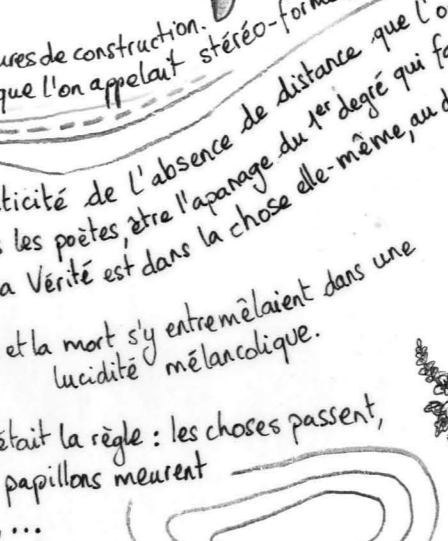 ures de construction.
que l'on appelait stéréo-form
ticité de l'absence de distance que l'o
les poètes, être l'apanage du 1er degré qui fa
a Vérité est dans la chose elle-même, au d
et la mort s'y entremêlaient dans une
lucidité mélancolique.
était la règle : les choses passent,
papillons meurent
...